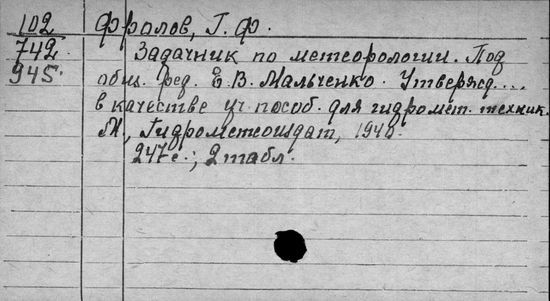 102 Фролов, Г. Ф.
742 Задачник по метеорологии. Под
945. общ. ред. Е. В. Мальченко. Утвержд....
в качестве уч. пособ. для гидромет. техник.
М., Гидрометеоиздат, 1940.
247 с.; 2 табл.